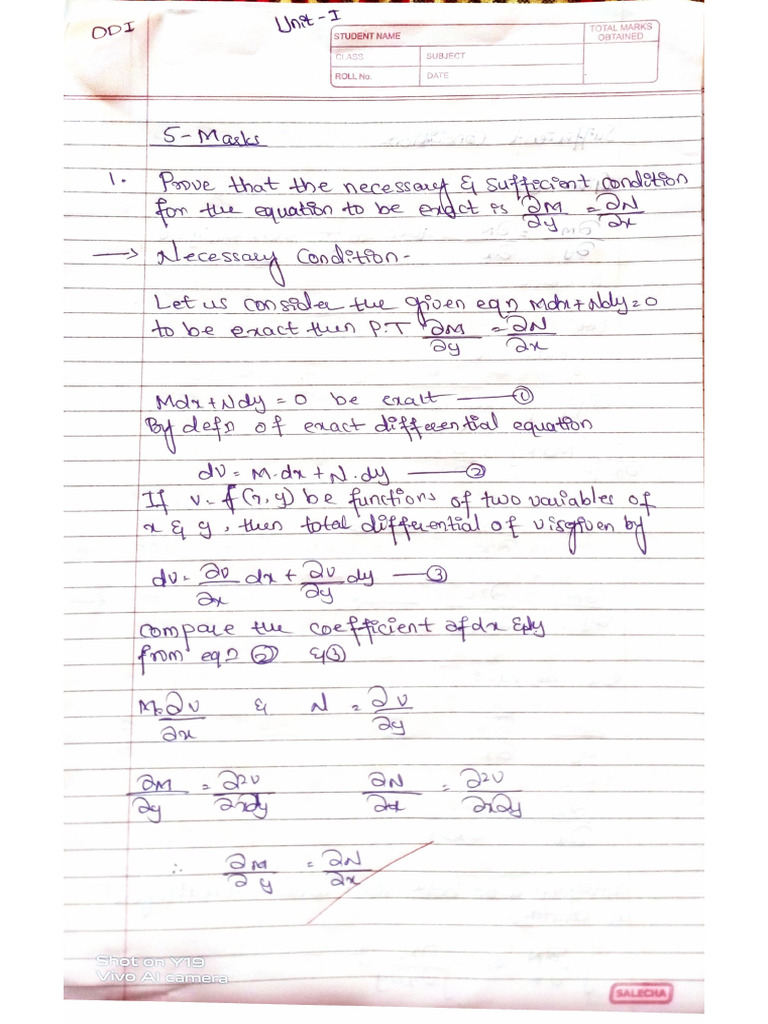 ODI
Unit - I
STUDENT NAME
TOTAL MARKS OBTAINED
CLASS
SUBJECT
ROLL No.
DATE
5-Marks
1. Prove that the necessary & sufficient condition
for the equation to be exact is ∂M/∂y = ∂N/∂x
→ Necessary Condition -
Let us consider the given eqn Mdx+Ndy=0
to be exact then P.T ∂M/∂y = ∂N/∂x
Mdx+Ndy = 0 be exact —— ①
By defn of exact differential equation
dv = M.dx + N.dy —— ②
If v = f(x,y) be functions of two variables of
x & y, then total differential of v is given by
dv = ∂v/∂x dx + ∂v/∂y dy —— ③
Compare the coefficient of dx & dy
from eqn ② & ③
M = ∂v/∂x & N = ∂v/∂y
∂M/∂y = ∂²v/∂x∂y ∂N/∂x = ∂²v/∂x∂y
∴ ∂M/∂y = ∂N/∂x
Shot on Y19
Vivo AI camera
SALECHA